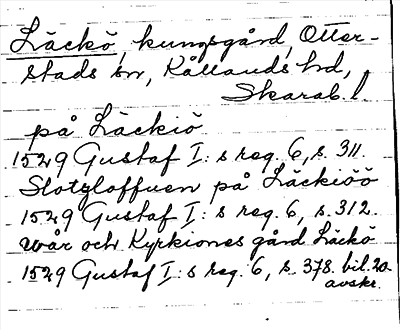 Läckö, kungsgård, Otter-
stads sn, Kållands hd,
Skarab. l.
på Läckiö
1529 Gustaf I:s reg. 6, s. 311.
Slotzloffuen på Läckiöö
1529 Gustaf I:s reg. 6, s. 312.
wår och Kyrkiones gård Läckö
1529 Gustaf I:s reg. 6, s. 378. bil. 20
avskr.